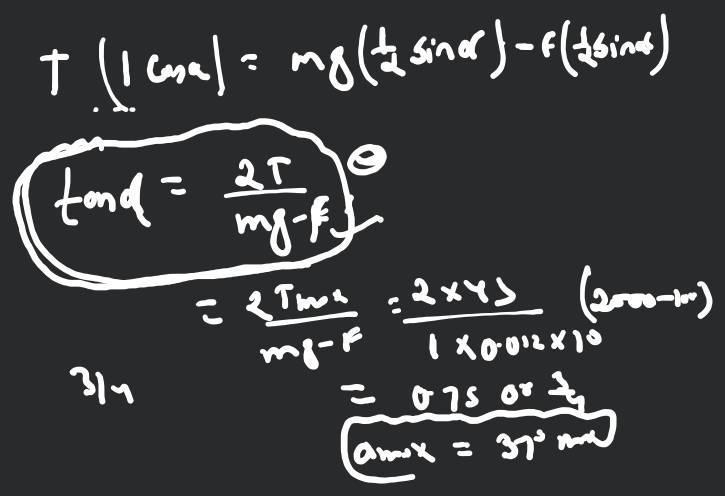 T (l cosα) = mg(l/2 sinα) - F(l/2 sinα)
tanα = 2T / mg-F
= 2Tmax / mg-F = 2×45 / 1×0.012×10 (2000-1000)
3/4 = 0.75 or 3/4
αmax = 37°